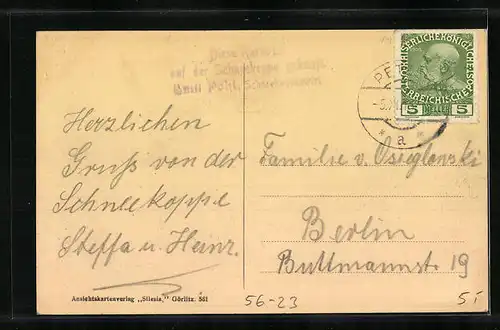 Diese Karte ist
auf der Schneekoppe gekauft.
Emil Pohl, Schneekoppe
KAISERLICHE KÖNIGLICHE
ÖSTERREICHISCHE
5 HELLER 5
PE
a
Herzlichen
Gruß von der
Schneekoppe
Steffa u. Heinz.
Familie v. Osieglowski
Berlin
Buttmannstr. 19
Ansichtskartenverlag „Silesia," Görlitz. 561
56-23
5т